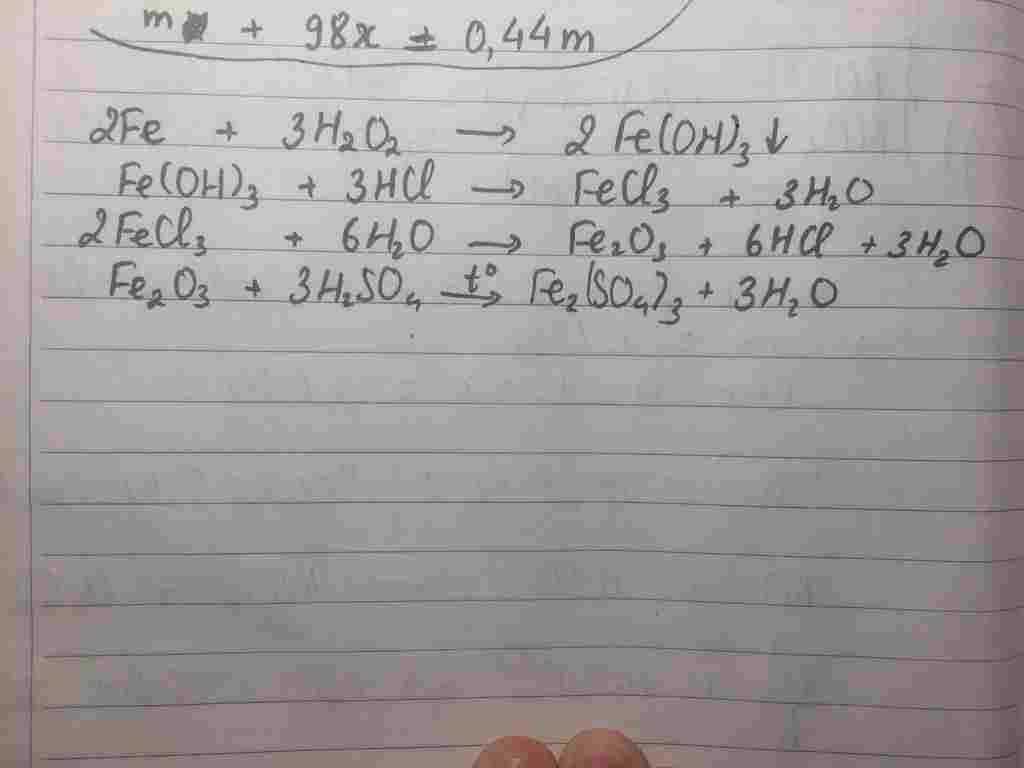 m + 98x ± 0,44m
2Fe + 3H₂O₂ → 2Fe(OH)₃↓
Fe(OH)₃ + 3HCl → FeCl₃ + 3H₂O
2FeCl₃ + 6H₂O → Fe₂O₃ + 6HCl + 3H₂O
Fe₂O₃ + 3H₂SO₄ t° → Fe₂(SO₄)₃ + 3H₂O